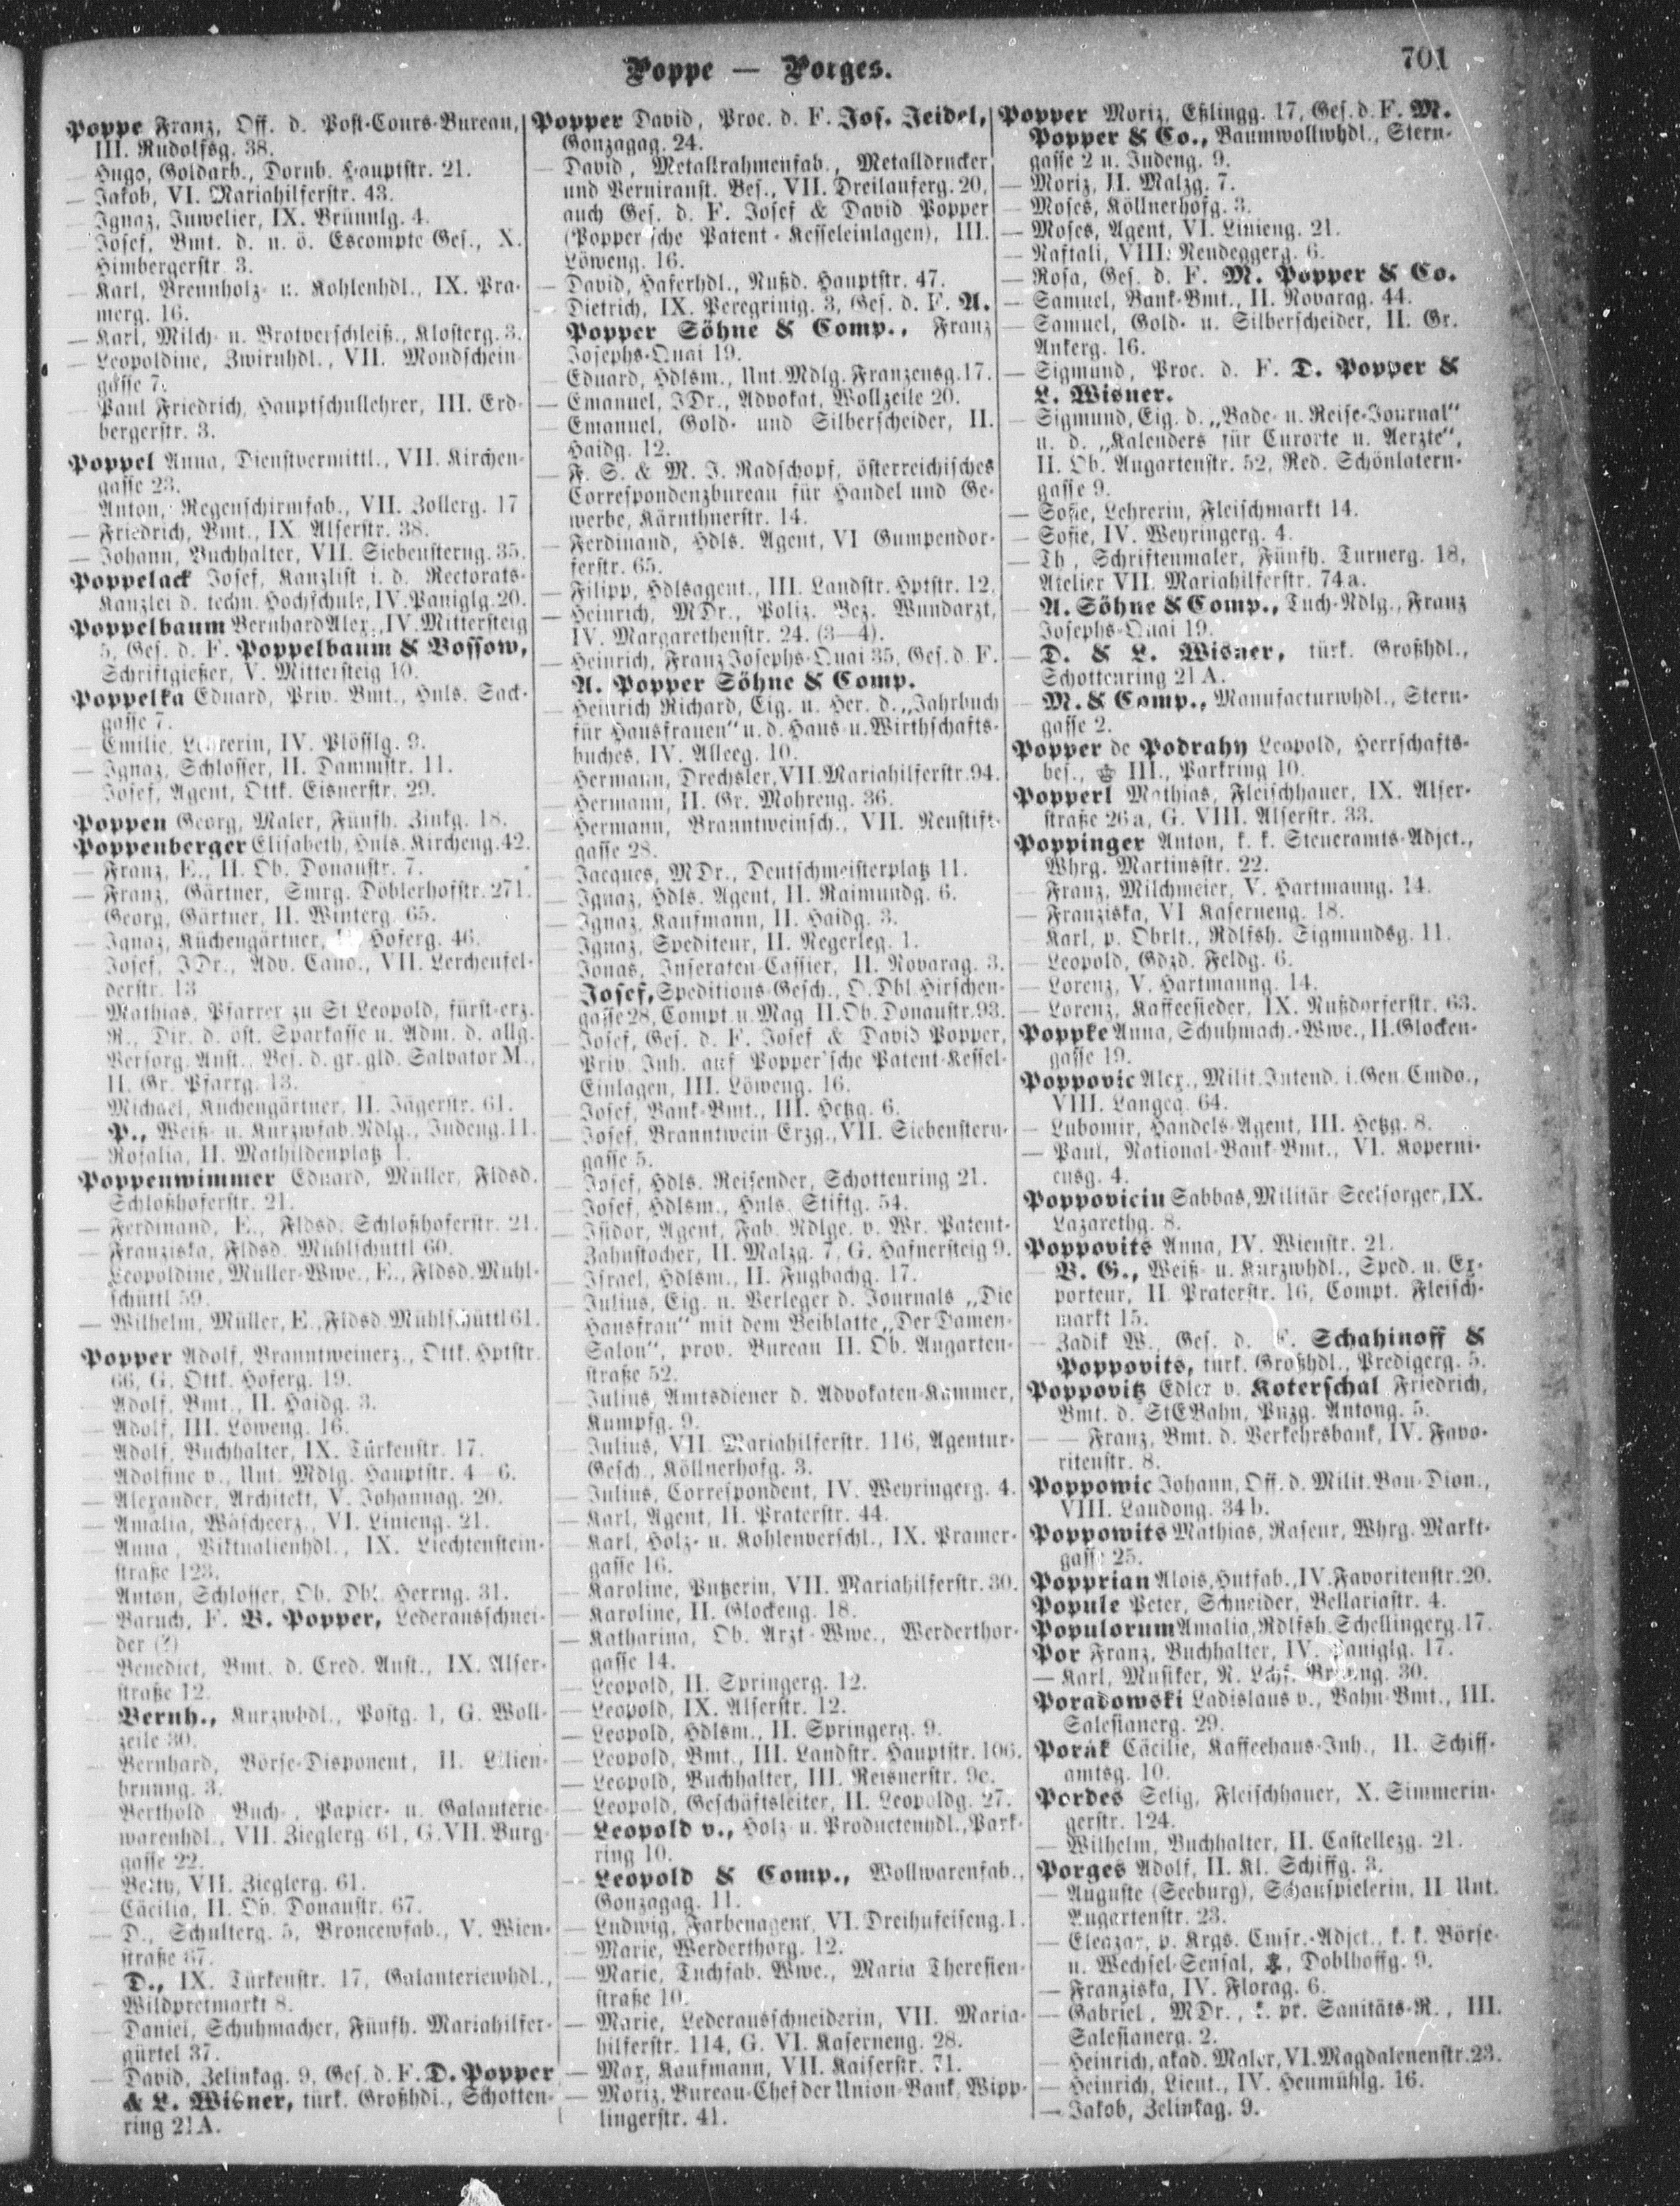 Poppe — Porges.
701
Poppe Franz, Off. d. Post-Cours-Bureau,
III. Rudolfsg. 38.
— Hugo, Goldarb., Dornb. Hauptstr. 21.
— Jakob, VI. Mariahilferstr. 43.
— Ignaz, Juwelier, IX. Brünnlg. 4.
— Josef, Bmt. d. n. ö. Escompte Ges., X.
Himbergerstr. 3.
— Karl, Brennholz- u. Kohlenhdl., IX. Pra-
merg. 16.
— Karl, Milch- u. Brotverschleiß., Klosterg. 3.
— Leopoldine, Zwirnhdl., VII. Mondschein-
gasse 7.
— Paul Friedrich, Hauptschullehrer, III. Erd-
bergerstr. 3.
Poppel Anna, Dienstvermittl., VII. Kirchen-
gasse 23.
— Anton, Regenschirmfab., VII. Zollerg. 17
— Friedrich, Bmt., IX. Alserstr. 38.
— Johann, Buchhalter, VII. Siebensterng. 35.
Poppelack Josef, Kanzlist i. d. Rectorats-
Kanzlei d. techn. Hochschule, IV. Paniglg. 20.
Poppelbaum Bernhard Alex., IV. Mittersteig
5, Ges. d. F. Poppelbaum & Bossow,
Schriftgießer, V. Mittersteig 10.
Poppelka Eduard, Priv. Bmt., Hnls. Sack-
gasse 7.
— Emilie, Lehrerin, IV. Plösslg. 9.
— Ignaz, Schlosser, II. Dammstr. 11.
Josef, Agent, Ottk. Eisnerstr. 29.
Poppen Georg, Maler, Fünfh. Zinkg. 18.
Poppenberger Elisabeth, Hnls. Kircheng. 42.
— Franz, E., II. Ob. Donaustr. 7.
— Franz, Gärtner, Smrg. Döblerhofstr. 271.
Georg, Gärtner, II. Winterg. 65.
— Ignaz, Küchengärtner, Hoferg. 46.
Josef, JDr., Adv. Cand., VII. Lerchenfel-
derstr. 13
— Mathias, Pfarrer zu St Leopold, fürst-erz.
R., Dir. d. öst. Sparkasse u. Adm. d. allg.
Versorg. Anst., Bes. d. gr. gld. Salvator M.,
II. Gr. Pfarrg. 13.
— Michael, Küchengärtner, II. Jägerstr. 61.
— P., Weiß- u. Kurzwfab. Ndlg., Judeng. 11.
— Rosalia, II. Mathildenplatz 1.
Poppenwimmer Eduard, Müller, Fldsd.
Schloßhoferstr. 21.
— Ferdinand, E., Fldsd. Schloßhoferstr. 21.
— Franziska, Fldsd. Mühlschüttl 60.
Leopoldine, Müller-Wwe., E., Fldsd. Mühl-
schüttl 59.
— Wilhelm, Müller, E., Fldsd. Mühlschüttl 61.
Popper Adolf, Branntweinerz., Ottk. Hptstr.
66, G. Ottk. Hoferg. 19.
— Adolf, Bmt., II. Haidg. 3.
— Adolf, III. Löweng. 16.
— Adolf, Buchhalter, IX. Türkenstr. 17.
— Adolfine v., Unt. Mdlg. Hauptstr. 4—6.
— Alexander, Architekt, V. Johannag. 20.
— Amalia, Wäscheerz., VI. Linieng. 21.
— Anna, Viktualienhdl., IX. Liechtenstein-
straße 123.
Anton, Schlosser, Ob. Dbl. Herrng. 31.
— Baruch, F. B. Popper, Lederausschnei-
der (?)
Benedict, Bmt. d. Cred. Anst., IX. Alser-
straße 12.
Bernh., Kurzwhdl., Postg. 1, G. Woll-
zeile 30.
Bernhard, Börse-Disponent, II. Lilien-
brunng. 3.
Berthold, Buch-, Papier- u. Galanterie-
warenhdl., VII. Zieglerg. 61, G. VII. Burg-
gasse 22.
— Betty, VII. Zieglerg. 61.
— Cäcilia, II. Ob. Donaustr. 67.
— D., Schulterg. 5, Broncewfab., V. Wien-
straße 67.
— D., IX. Türkenstr. 17, Galanteriewhdl.,
Wildpretmarkt 8.
Daniel, Schuhmacher, Fünfh. Mariahilfer-
gürtel 37.
— David, Zelinkag. 9, Ges. d. F. D. Popper
& L. Wisner, türk. Großhdl., Schotten-
ring 21A.
Popper David, Proc. d. F. Jos. Jeidel,
Gonzagag. 24.
— David, Metallrahmenfab., Metalldrucker
und Verniranst. Bes., VII. Dreilauferg. 20,
auch Ges. d. F. Josef & David Popper
(Popper'sche Patent-Kesseleinlagen), III.
Löweng. 16.
— David, Haferhdl., Nußd. Hauptstr. 47.
— Dietrich, IX. Peregrinig. 3, Ges. d. F. A.
Popper Söhne & Comp., Franz
Josephs-Quai 19.
— Eduard, Hdlsm., Unt. Mdlg. Franzensg. 17.
— Emanuel, JDr., Advokat, Wollzeile 20.
— Emanuel, Gold- und Silberscheider, II.
Haidg. 12.
— F. S. & M. J. Radschopf, österreichisches
Correspondenzbureau für Handel und Ge-
werbe, Kärnthnerstr. 14.
— Ferdinand, Hdls. Agent, VI Gumpendor-
ferstr. 65.
— Filipp, Hdlsagent., III. Landstr. Hptstr. 12.
— Heinrich, MDr., Poliz. Bez. Wundarzt,
IV. Margarethenstr. 24. (3—4).
— Heinrich, Franz Josephs-Quai 35, Ges. d. F.
A. Popper Söhne & Comp.
— Heinrich Richard, Eig. u. Her. d. „Jahrbuch
für Hausfrauen" u. d. Haus- u. Wirthschafts-
buches, IV. Alleeg. 10.
— Hermann, Drechsler, VII. Mariahilferstr. 94.
— Hermann, II. Gr. Mohreng. 36.
— Hermann, Branntweinsch., VII. Neustift-
gasse 28.
— Jacques, MDr., Deutschmeisterplatz 11.
— Ignaz, Hdls. Agent, II. Raimundg. 6.
— Ignaz, Kaufmann, II. Haidg. 3.
— Ignaz, Spediteur, II. Negerleg. 1.
— Jonas, Inseraten-Cassier, II. Novarag. 3.
— Josef, Speditions-Gesch., O. Dbl. Hirschen-
gasse 28, Compt. u. Mag II. Ob. Donaustr. 93.
— Josef, Ges. d. F. Josef & David Popper,
Priv. Inh. auf Popper'sche Patent-Kessel-
Einlagen, III. Löweng. 16.
— Josef, Bank-Bmt., III. Hetzg. 6.
— Josef, Branntwein-Erzg., VII. Siebenstern-
gasse 5.
— Josef, Hdls. Reisender, Schottenring 21.
— Josef, Hdlsm., Hnls. Stiftg. 54.
— Isidor, Agent, Fab. Ndlge. v. Wr. Patent-
Zahnstocher, II. Malzg. 7, G. Hafnersteig 9.
— Israel, Hdlsm., II. Fugbachg. 17.
— Julius, Eig. u. Verleger d. Journals „Die
Hausfrau" mit dem Beiblatte „Der Damen-
Salon", prov. Bureau II. Ob. Augarten-
straße 52.
— Julius, Amtsdiener d. Advokaten-Kammer,
Kumpfg. 9.
— Julius, VII. Mariahilferstr. 116, Agentur-
Gesch., Köllnerhofg. 3.
— Julius, Correspondent, IV. Weyringerg. 4.
— Karl, Agent, II. Praterstr. 44.
— Karl, Holz- u. Kohlenverschl., IX. Pramer-
gasse 16.
— Karoline, Putzerin, VII. Mariahilferstr. 30.
— Karoline, II. Glockeng. 18.
— Katharina, Ob. Arzt-Wwe., Werderthor-
gasse 14.
— Leopold, II. Springerg. 12.
— Leopold, IX. Alserstr. 12.
— Leopold, Hdlsm., II. Springerg. 9.
— Leopold, Bmt., III. Landstr. Hauptstr. 106.
— Leopold, Buchhalter, III. Reisnerstr. 9c.
— Leopold, Geschäftsleiter, II. Leopoldg. 27.
— Leopold v., Holz- u. Productenhdl., Park-
ring 10.
— Leopold & Comp., Wollwarenfab.,
Gonzagag. 11.
— Ludwig, Farbenagent, VI. Dreihufeiseng. 1.
— Marie, Werderthorg. 12.
— Marie, Tuchfab. Wwe., Maria Theresien-
straße 10.
— Marie, Lederausschneiderin, VII. Maria-
hilferstr. 114, G. VI. Kaserneng. 28.
— Max, Kaufmann, VII. Kaiserstr. 71.
— Moriz, Bureau-Chef der Union-Bank, Wipp-
lingerstr. 41.
Popper Moriz, Eßlingg. 17, Ges. d. F. M.
Popper & Co., Baumwollwhdl., Stern-
gasse 2 u. Judeng. 9.
— Moriz, II. Malzg. 7.
— Moses, Köllnerhofg. 3.
— Moses, Agent, VI. Linieng. 21.
— Naftali, VIII. Neudeggerg. 6.
— Rosa, Ges. d. F. M. Popper & Co.
— Samuel, Bank-Bmt., II. Novarag. 44.
— Samuel, Gold- u. Silberscheider, II. Gr.
Ankerg. 16.
— Sigmund, Proc. d. F. D. Popper &
L. Wisner.
— Sigmund, Eig. d. „Bade- u. Reise-Journal"
u. d. „Kalenders für Curorte u. Aerzte",
II. Ob. Augartenstr. 52, Red. Schönlatern-
gasse 9.
— Sofie, Lehrerin, Fleischmarkt 14.
— Sofie, IV. Weyringerg. 4.
— Th., Schriftenmaler, Fünfh. Turnerg. 18,
Atelier VII. Mariahilferstr. 74a.
— A. Söhne & Comp., Tuch-Ndlg., Franz
Josephs-Quai 19.
— D. & L. Wisner, türk. Großhdl.,
Schottenring 21A.
— M. & Comp., Manufacturwhdl., Stern-
gasse 2.
Popper de Podrahy Leopold, Herrschafts-
bes., III., Parkring 10.
Popperl Mathias, Fleischhauer, IX. Alser-
straße 26a, G. VIII. Alserstr. 33.
Poppinger Anton, k. k. Steueramts-Adjct.,
Whrg. Martinsstr. 22.
— Franz, Milchmeier, V. Hartmanng. 14.
— Franziska, VI Kaserneng. 18.
— Karl, p. Obrlt., Rdlfsh. Sigmundsg. 11.
— Leopold, Gdzd. Feldg. 6.
— Lorenz, V. Hartmanng. 14.
— Lorenz, Kaffeesieder, IX. Nußdorferstr. 63.
Poppke Anna, Schuhmach.-Wwe., II. Glocken-
gasse 19.
Poppovic Alex., Milit. Intend. i. Gen. Cmdo.,
VIII. Langeg. 64.
— Lubomir, Handels-Agent, III. Hetzg. 8.
— Paul, National-Bank-Bmt., VI. Koperni-
cusg. 4.
Poppoviciu Sabbas, Militär-Seelsorger, IX.
Lazarethg. 8.
Poppovits Anna, IV. Wienstr. 21.
— B. G., Weiß- u. Kurzwhdl., Sped. u. Ex-
porteur, II. Praterstr. 16, Compt. Fleisch-
markt 15.
— Zadik W., Ges. d. F. Schahinoff &
Poppovits, türk. Großhdl., Predigerg. 5.
Poppovitz Edler v. Koterschal Friedrich,
Bmt. d. StEBahn, Pnzg. Antong. 5.
— — Franz, Bmt. d. Verkehrsbank, IV. Favo-
ritenstr. 8.
Poppowic Johann, Off. d. Milit. Bau-Dion.,
VIII. Laudong. 34b.
Poppowits Mathias, Raseur, Whrg. Markt-
gasse 25.
Popprian Alois, Hutfab., IV. Favoritenstr. 20.
Popule Peter, Schneider, Bellariastr. 4.
Populorum Amalia, Rdlfsh. Schellingerg. 17.
Por Franz, Buchhalter, IV. Paniglg. 17.
— Karl, Musiker, N. Lchf. 30.
Poradowski Ladislaus v., Bahn-Bmt., III.
Salesianerg. 29.
Porák Cäcilie, Kaffeehaus-Inh., II. Schiff-
amtsg. 10.
Pordes Selig, Fleischhauer, X. Simmerin-
gerstr. 124.
— Wilhelm, Buchhalter, II. Castellezg. 21.
Porges Adolf, II. Kl. Schiffg. 3.
— Auguste (Seeburg), Schauspielerin, II. Unt.
Augartenstr. 23.
— Eleazar, p. Krgs. Cmsr.-Adjct., k. k. Börse-
u. Wechsel-Sensal, Doblhoffg. 9.
— Franziska, IV. Florag. 6.
— Gabriel, MDr., k. pr. Sanitäts-R., III.
Salesianerg. 2.
— Heinrich, akad. Maler, VI. Magdalenenstr. 23.
— Heinrich, Lieut., IV. Heumühlg. 16.
— Jakob, Zelinkag. 9.